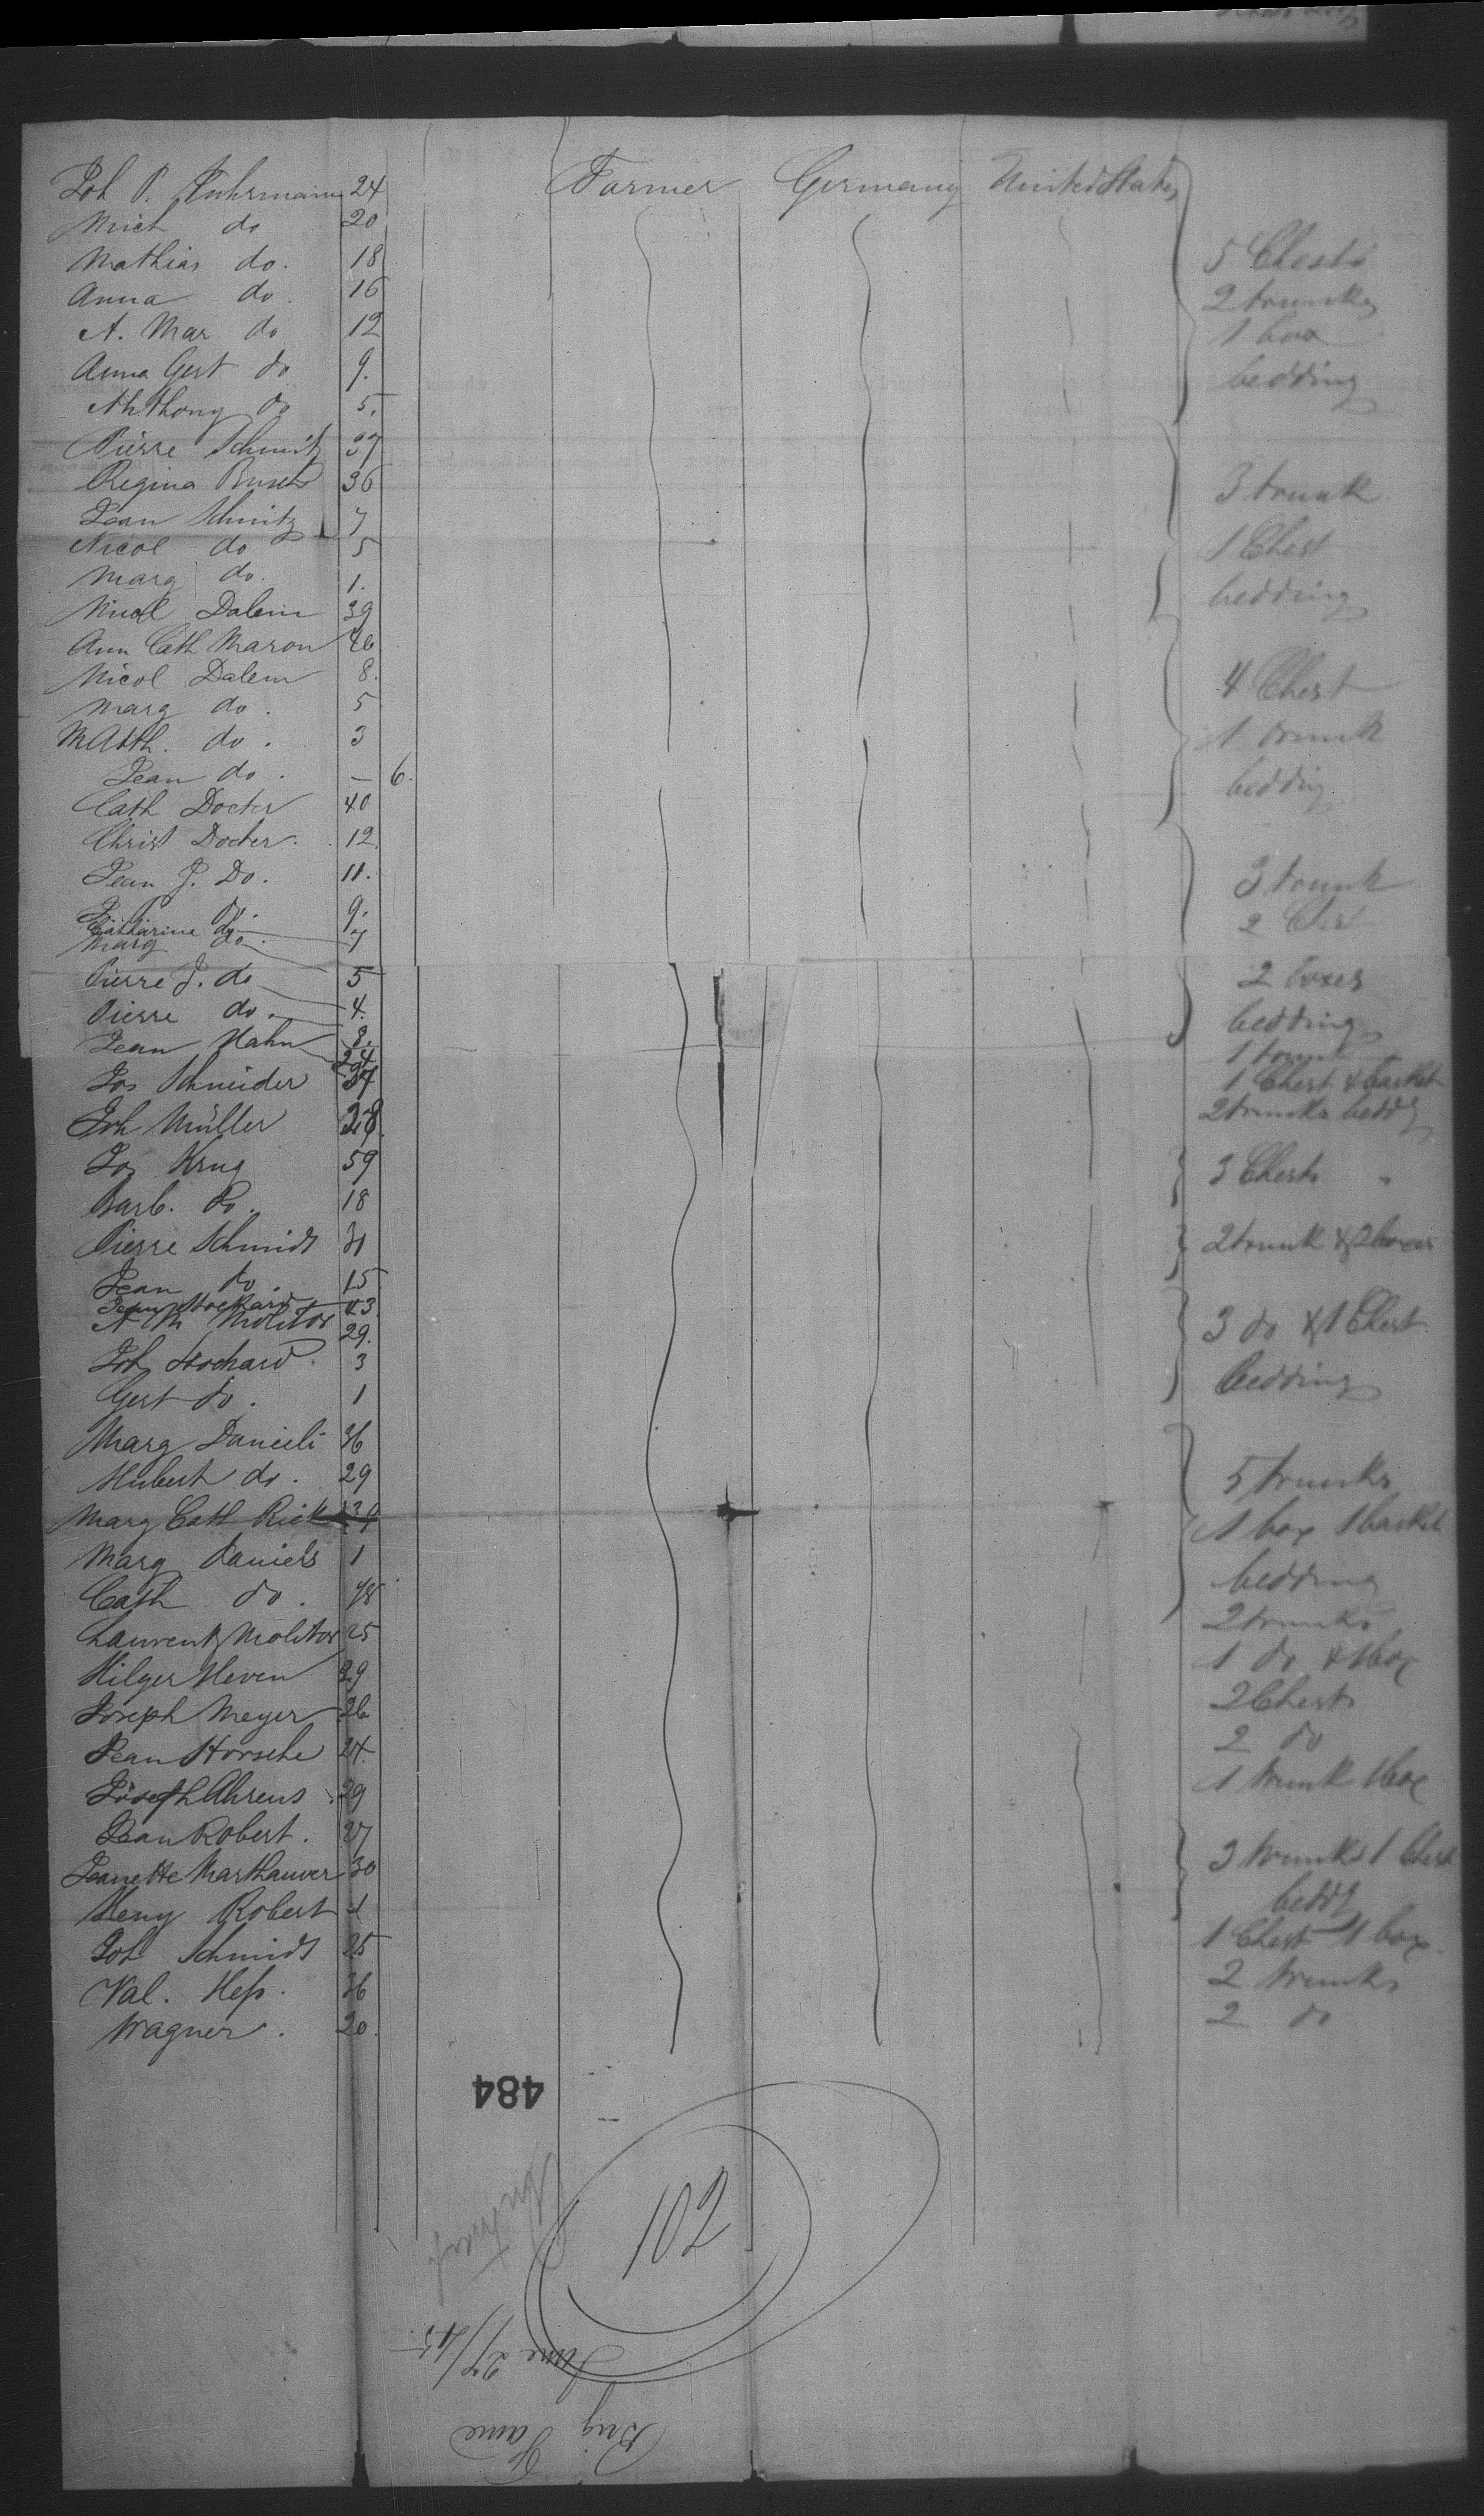 Joh P. Fuhrmann 24 Farmer Germany United States
Mich do 20
Mathias do. 18 5 Chests
Anna do. 16 2 trunks
A. Mar do 12 1 box
Anna Gert do 9. bedding
Anthony do 5.
Pierre Schmitz 37
Regina 36 3 trunk
Jean Schmitz 7
Nicol do 5 1 Chest
Marg do. 1. bedding
Nicol Dalem 39
Ann Cath Maron 46
Nicol Dalem 8. 4 Chest
Marg do. 5
Math. do. 3 1 trunk
Jean do. — 6. bedding
Cath Docter 40
Christ Docter. 12
Jean J. Do. 11. 3 trunk
do. 9. 2 Chest
Catharine do
Marg do. 7
Pierre J. do 5 2 boxes
Pierre do. 4. bedding
Jean Hahn 8. 1 trunk
24
Jos Schneider 1 Chest & basket
Joh Müller 28. 2 trunks beddg
Jos Krug 59 3 Chests "
Barb. Do. 18
Pierre Schmidt 31 2 trunk & 2 boxes
Jean do. 15
Jean Stockard 43
A M Molitor 29. 3 do & 1 Chest
Joh Stochard. 3
Gert do. 1 bedding
Marg Danieli 36
Hubert do. 29 5 trunks
Marg Cath Rick 39 1 box 1 basket
Marg Daniels 1
Cath do. bedding
Laurent Molitor 25 2 trunks
Hilger Heven 29 1 do & 1 box
Joseph Meyer 26 2 Chests
Jean Horsche 24. 2 do
Joseph Ahrens 29 1 trunk 1 box
Jean Robert. 27 3 trunks 1 Chest
Jeanette Marthauer 30
Heny Robert 1 beddg
Joh Schmidt 25 1 Chest 1 box
Val. Hess. 36 2 trunks
Wagner. 20. 2 do
484
102
June 27/45.
Brig Fame